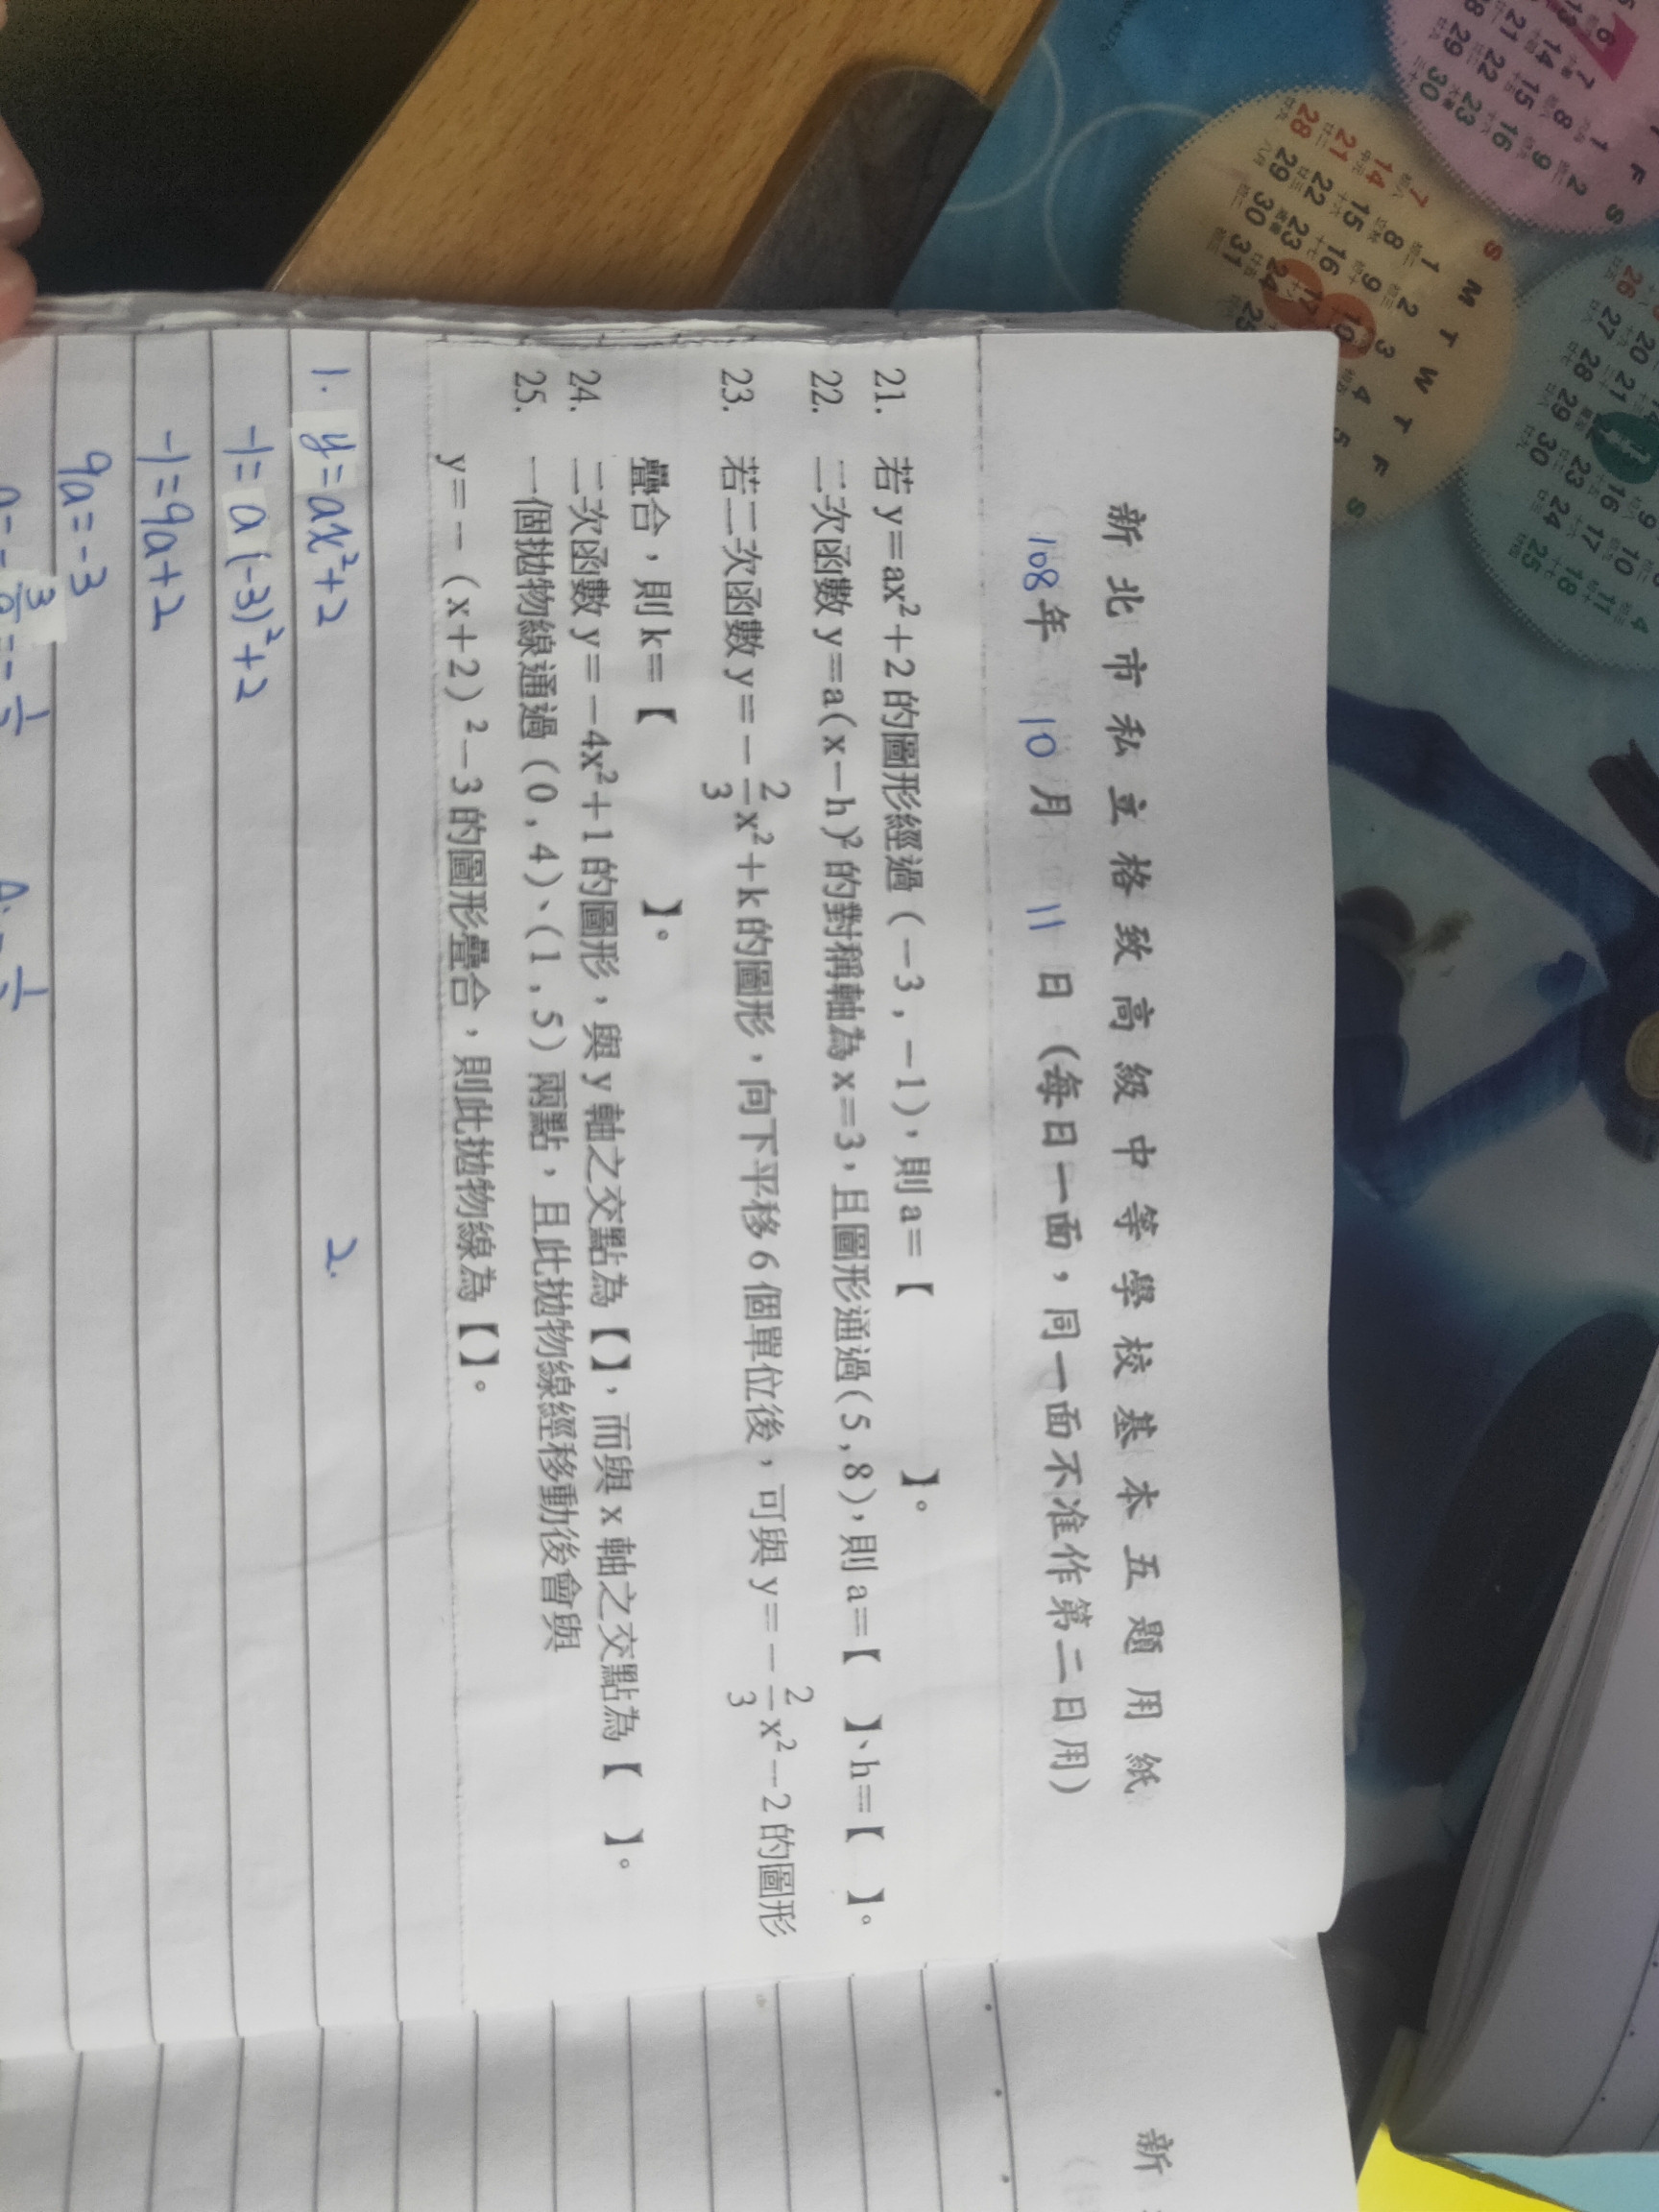 新北市私立格致高級中等學校基本五題用紙
108年 10月 11日（每日一面，同一面不准作第二日用）
21. 若 y＝ax²＋2 的圖形經過（－3，－1），則 a＝【 】。
22. 二次函數 y＝a(x－h)² 的對稱軸為 x＝3，且圖形通過(5,8)，則 a＝【 】、h＝【 】。
23. 若二次函數 y＝－2/3x²＋k 的圖形，向下平移 6 個單位後，可與 y＝－2/3x²－2 的圖形
疊合，則 k＝【 】。
24. 二次函數 y＝－4x²＋1 的圖形，與 y 軸之交點為【】，而與 x 軸之交點為【 】。
25. 一個拋物線通過（0,4）、（1,5）兩點，且此拋物線經移動後會與
y＝－（x＋2）²－3 的圖形疊合，則此拋物線為【】。
1. y=ax²+2
2.
-1=a(-3)²+2
-1=9a+2
9a=-3
新
S M T W T F S
1 2 3 4 5
7 8 9 10
14 15 16 17
21 22 23 24 25
28 29 30 31